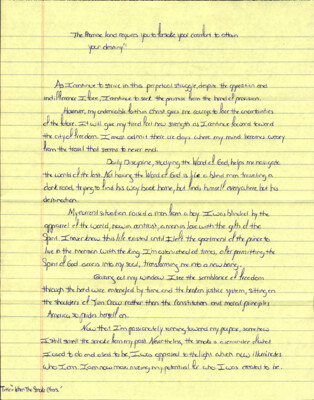 "The Promise land requires you to forsake your comfort to attain
your destiny"
As I continue to strive in this perpetual struggle, despite the oppression and
indifference I face, I continue to seek the promise from the hand of provision.
However, my undeniable faith in Christ gives me courage to face the uncertainties
of the future. It will give my tired feet new strength as I continue forward toward
the city of freedom. I must admit there are days where my mind becomes weary
from the travel that seems to never end.
Daily Discipline, studying the Word of God, helps me navigate
the world of the lost. Not having the Word of God is like a blind man traveling a
dark road, trying to find his way back home, but finds himself everywhere but his
destination.
My current situation raised a man from a boy. I was blinded by the
apparel of the world, now in contrast, a man in love with the gifts of the
Spirit. I never knew this life existed until I left the apartment of the prince to
live in the mansion with the King. I'm astonished at times, after permitting the
Spirit of God access into my soul, transforming me into a new being.
Gazing out my window I see the semblance of freedom
through the barb wire entangled by time, and the broken justice system, sitting on
the shoulders of Jim Crow rather than the Constitution and moral principles
America so prides herself on.
Now that I'm passionately running toward my purpose, somehow
I still smell the smoke from my past. Nevertheless, the smoke is a reminder of what
I used to do and used to be, I was opposed to the light which now illuminates
who I am. I am now maximizing my potential for who I was created to be.
"When The Smoke Clears."